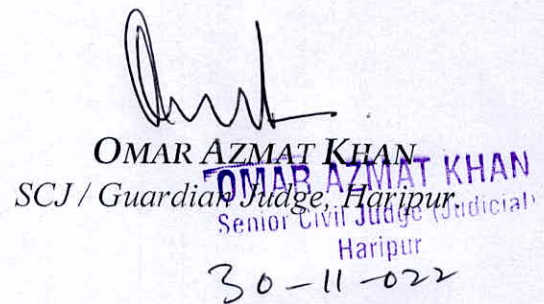 OMAR AZMAT KHAN
SCJ / Guardian Judge, Haripur.
OMAR AZMAT KHAN
Senior Civil Judge (Judicial)
Haripur
30-11-022